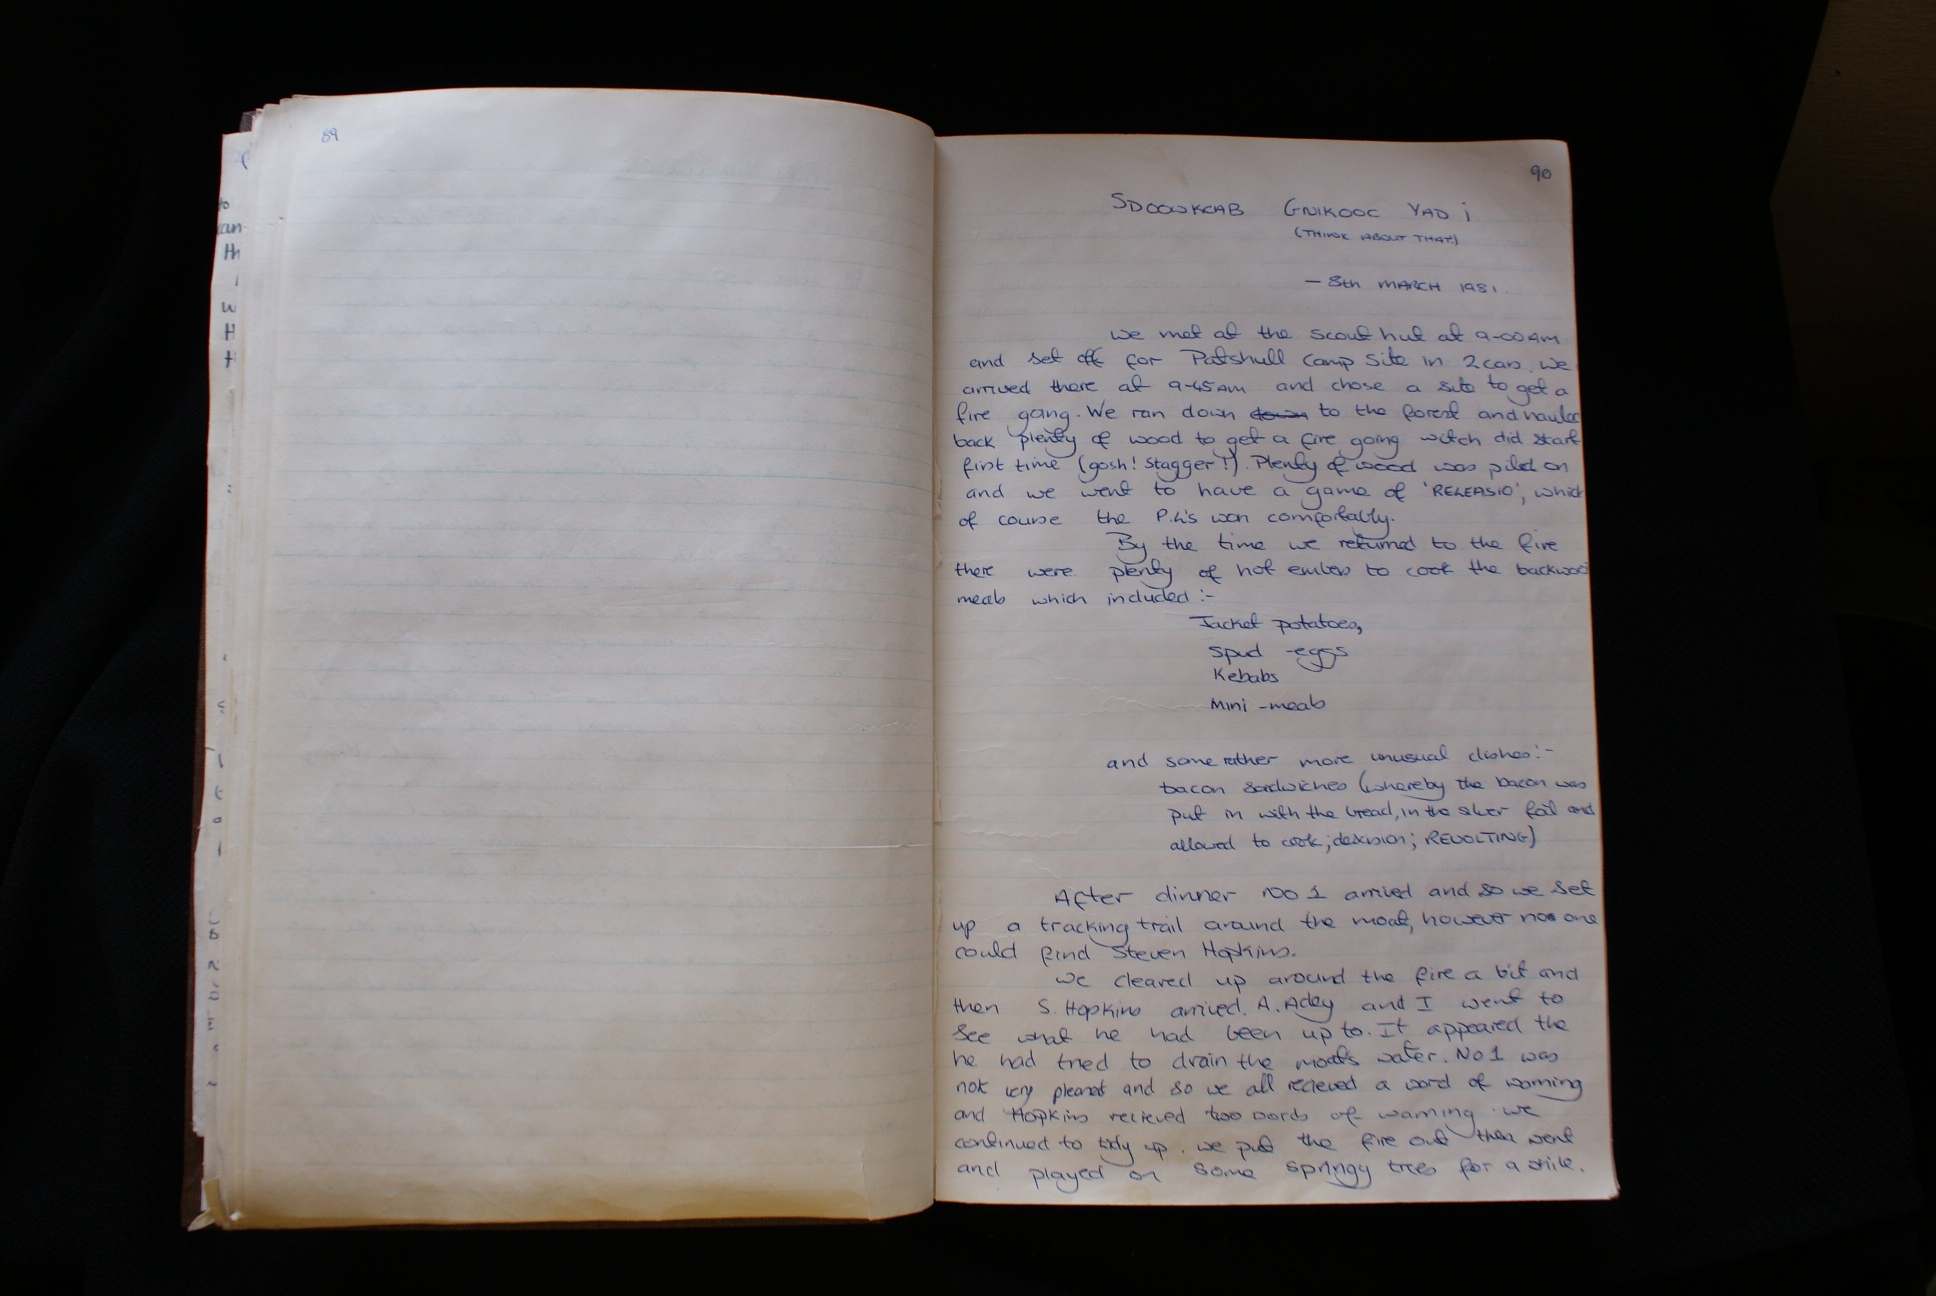 89
90
SDOOWKCAB GNIKOOC YAD i
(THINK ABOUT THAT!)
— 8th MARCH 1981.
We met at the scout hut at 9-00AM
and set off for Patshull Camp Site in 2 cars. We
arrived there at 9-45AM and chose a site to get a
fire going. We ran down down to the forest and hauled
back plenty of wood to get a fire going witch did start
first time (gosh! Stagger!). Plenty of wood was piled on
and we went to have a game of 'RELEASIO', which
of course the P.L's won comfortably.
By the time we returned to the fire
there were plenty of hot embers to cook the backwood
meals which included :-
Jacket potatoes,
Spud -eggs
Kebabs
Mini -meals
and some rather more unusual dishes:-
bacon sandwiches (whereby the bacon was
put in with the bread, in the silver foil and
allowed to cook; decision; REVOLTING)
After dinner No 1 arrived and so we set
up a tracking trail around the moat, however no one
could find Steven Hopkins.
We cleared up around the fire a bit and
then S. Hopkins arrived. A. Adey and I went to
see what he had been up to. It appeared the
he had tried to drain the moats water. No 1 was
not very pleased and so we all recieved a word of warning
and Hopkins recieved two words of warning. We
continued to tidy up. We put the fire out then went
and played on some springy trees for a while.